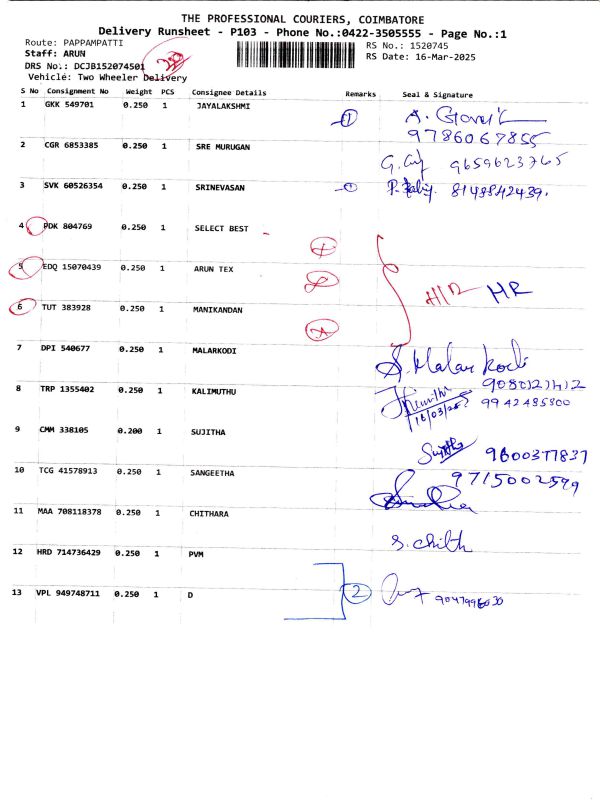 THE PROFESSIONAL COURIERS, COIMBATORE
Delivery Runsheet - P103 - Phone No.:0422-3505555 - Page No.:1
Route: PAPPAMPATTI
RS No.: 1520745
Staff: ARUN
RS Date: 16-Mar-2025
DRS No.: DCJB152074501
Vehicle: Two Wheeler Delivery
S No Consignment No Weight PCS Consignee Details Remarks Seal & Signature
1 GKK 549701 0.250 1 JAYALAKSHMI 1
9786067855
2 CGR 6853385 0.250 1 SRE MURUGAN
9659623765
3 SVK 60526354 0.250 1 SRINEVASAN 8148842439.
4 PDK 804769 0.250 1 SELECT BEST
5 EDQ 15070439 0.250 1 ARUN TEX
HR
6 TUT 383928 0.250 1 MANIKANDAN
7 DPI 540677 0.250 1 MALARKODI
Malar Kodi
8 TRP 1355402 0.250 1 KALIMUTHU
16/03/25 9942485800
9 CMM 338105 0.200 1 SUJITHA
9600377837
10 TCG 41578913 0.250 1 SANGEETHA 9715002599
11 MAA 708118378 0.250 1 CHITHARA
S. Chith
12 HRD 714736429 0.250 1 PVM
13 VPL 949748711 0.250 1 D 2